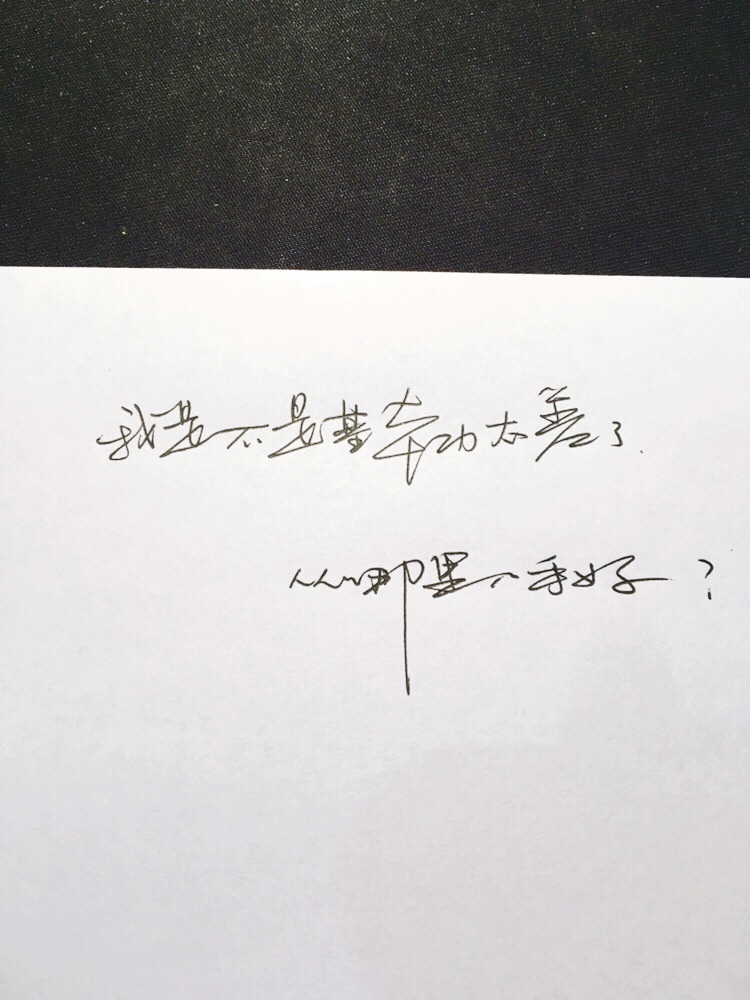 我是不是基本功太差了.
从哪里入手好?